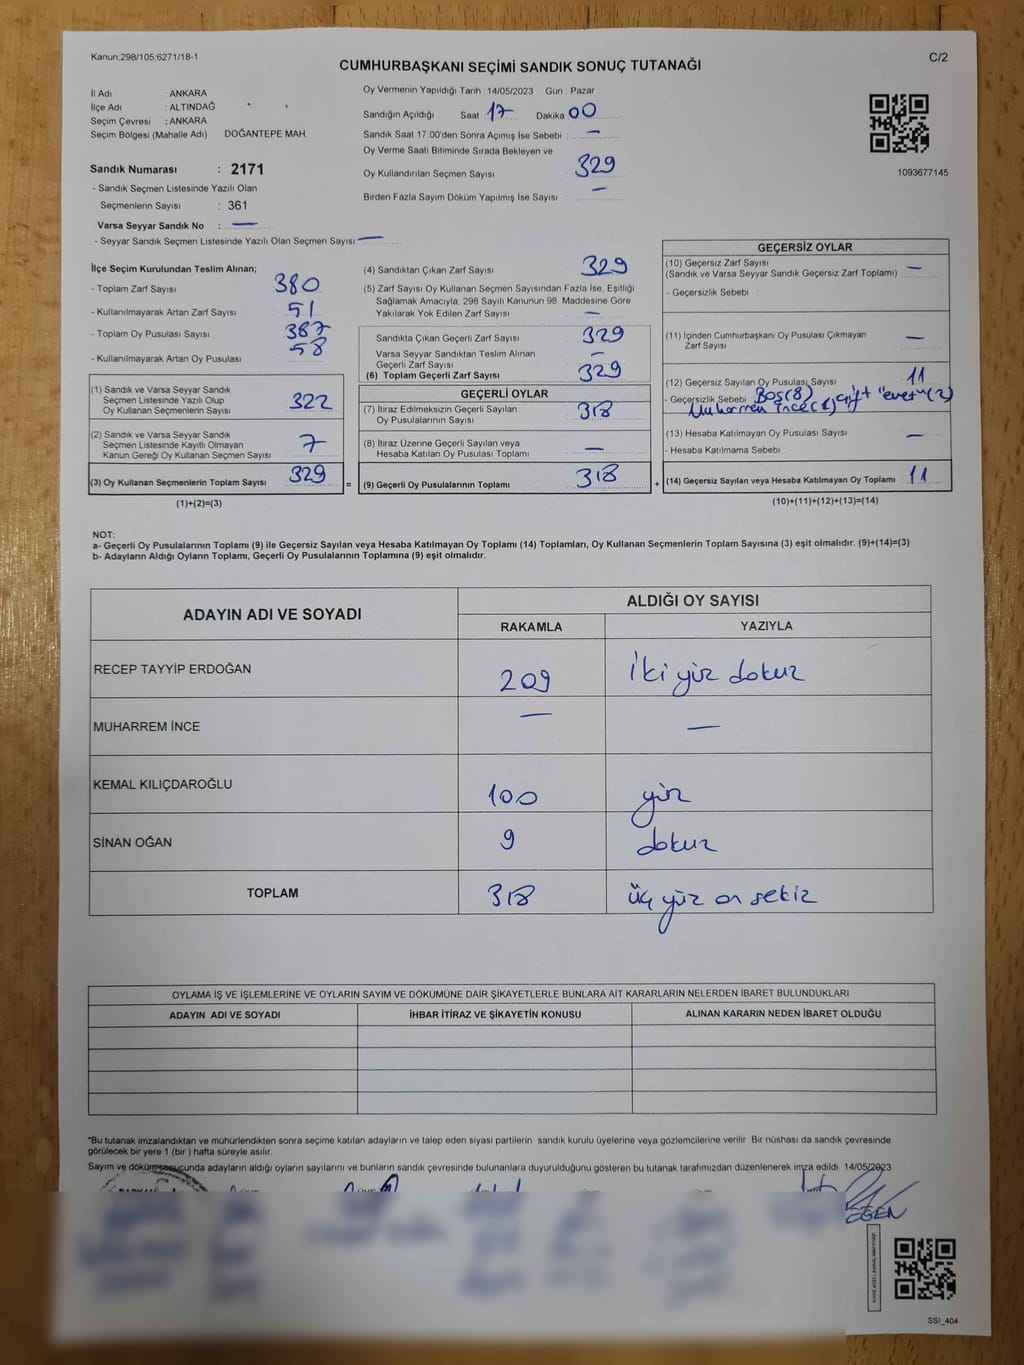 Kanun;298/105;6271/18-1
C/2
CUMHURBAŞKANI SEÇİMİ SANDIK SONUÇ TUTANAĞI
İl Adı : ANKARA
İlçe Adı : ALTINDAĞ
Seçim Çevresi : ANKARA
Seçim Bölgesi (Mahalle Adı) DOĞANTEPE MAH.
Oy Vermenin Yapıldığı Tarih : 14/05/2023 Gün : Pazar
Sandığın Açıldığı Saat 17 Dakika 00
Sandık Saat 17:00'den Sonra Açımış İse Sebebi : —
Oy Verme Saati Bitiminde Sırada Bekleyen ve
Oy Kullandırılan Seçmen Sayısı : 329
Birden Fazla Sayım Döküm Yapılmış İse Sayısı : —
1093677145
Sandık Numarası : 2171
- Sandık Seçmen Listesinde Yazılı Olan
Seçmenlerin Sayısı : 361
Varsa Seyyar Sandık No : —
- Seyyar Sandık Seçmen Listesinde Yazılı Olan Seçmen Sayısı: —
İlçe Seçim Kurulundan Teslim Alınan;
- Toplam Zarf Sayısı 380
- Kullanılmayarak Artan Zarf Sayısı 51
- Toplam Oy Pusulası Sayısı 387
- Kullanılmayarak Artan Oy Pusulası 58
(1) Sandık ve Varsa Seyyar Sandık
Seçmen Listesinde Yazılı Olup
Oy Kullanan Seçmenlerin Sayısı 322
(2) Sandık ve Varsa Seyyar Sandık
Seçmen Listesinde Kayıtlı Olmayan
Kanun Gereği Oy Kullanan Seçmen Sayısı 7
(3) Oy Kullanan Seçmenlerin Toplam Sayısı 329
(1)+(2)=(3)
(4) Sandıktan Çıkan Zarf Sayısı 329
(5) Zarf Sayısı Oy Kullanan Seçmen Sayısından Fazla İse, Eşitliği
Sağlamak Amacıyla, 298 Sayılı Kanunun 98. Maddesine Göre
Yakılarak Yok Edilen Zarf Sayısı : —
Sandıkta Çıkan Geçerli Zarf Sayısı 329
Varsa Seyyar Sandıktan Teslim Alınan
Geçerli Zarf Sayısı —
(6) Toplam Geçerli Zarf Sayısı 329
=
GEÇERLİ OYLAR
(7) İtiraz Edilmeksizin Geçerli Sayılan
Oy Pusulalarının Sayısı 318
(8) İtiraz Üzerine Geçerli Sayılan veya
Hesaba Katılan Oy Pusulası Toplamı —
(9) Geçerli Oy Pusulalarının Toplamı 318
+
GEÇERSİZ OYLAR
(10) Geçersiz Zarf Sayısı
(Sandık ve Varsa Seyyar Sandık Geçersiz Zarf Toplamı) —
- Geçersizlik Sebebi :
(11) İçinden Cumhurbaşkanı Oy Pusulası Çıkmayan
Zarf Sayısı —
(12) Geçersiz Sayılan Oy Pusulası Sayısı 11
- Geçersizlik Sebebi Boş(8) çift "evet"(2)
Muharrem İnce(1)
(13) Hesaba Katılmayan Oy Pusulası Sayısı —
- Hesaba Katılmama Sebebi :
(14) Geçersiz Sayılan veya Hesaba Katılmayan Oy Toplamı 11
(10)+(11)+(12)+(13)=(14)
NOT:
a- Geçerli Oy Pusulalarının Toplamı (9) ile Geçersiz Sayılan veya Hesaba Katılmayan Oy Toplamı (14) Toplamları, Oy Kullanan Seçmenlerin Toplam Sayısına (3) eşit olmalıdır. (9)+(14)=(3)
b- Adayların Aldığı Oyların Toplamı, Geçerli Oy Pusulalarının Toplamına (9) eşit olmalıdır.
ADAYIN ADI VE SOYADI ALDIĞI OY SAYISI
RAKAMLA YAZIYLA
RECEP TAYYİP ERDOĞAN 209 iki yüz dokuz
MUHARREM İNCE — —
KEMAL KILIÇDAROĞLU 100 yüz
SİNAN OĞAN 9 dokuz
TOPLAM 318 üç yüz on sekiz
OYLAMA İŞ VE İŞLEMLERİNE VE OYLARIN SAYIM VE DÖKÜMÜNE DAİR ŞİKAYETLERLE BUNLARA AİT KARARLARIN NELERDEN İBARET BULUNDUKLARI
ADAYIN ADI VE SOYADI İHBAR İTİRAZ VE ŞİKAYETİN KONUSU ALINAN KARARIN NEDEN İBARET OLDUĞU
*Bu tutanak imzalandıktan ve mühürlendikten sonra seçime katılan adayların ve talep eden siyasi partilerin sandık kurulu üyelerine veya gözlemcilerine verilir. Bir nüshası da sandık çevresinde
görülecek bir yere 1 (bir) hafta süreyle asılır.
Sayım ve döküm sonucunda adayların aldığı oyların sayılarını ve bunların sandık çevresinde bulunanlara duyurulduğunu gösteren bu tutanak tarafımızdan düzenlenerek imza edildi. 14/05/2023
BAŞKAN
EGEN
SSI_404